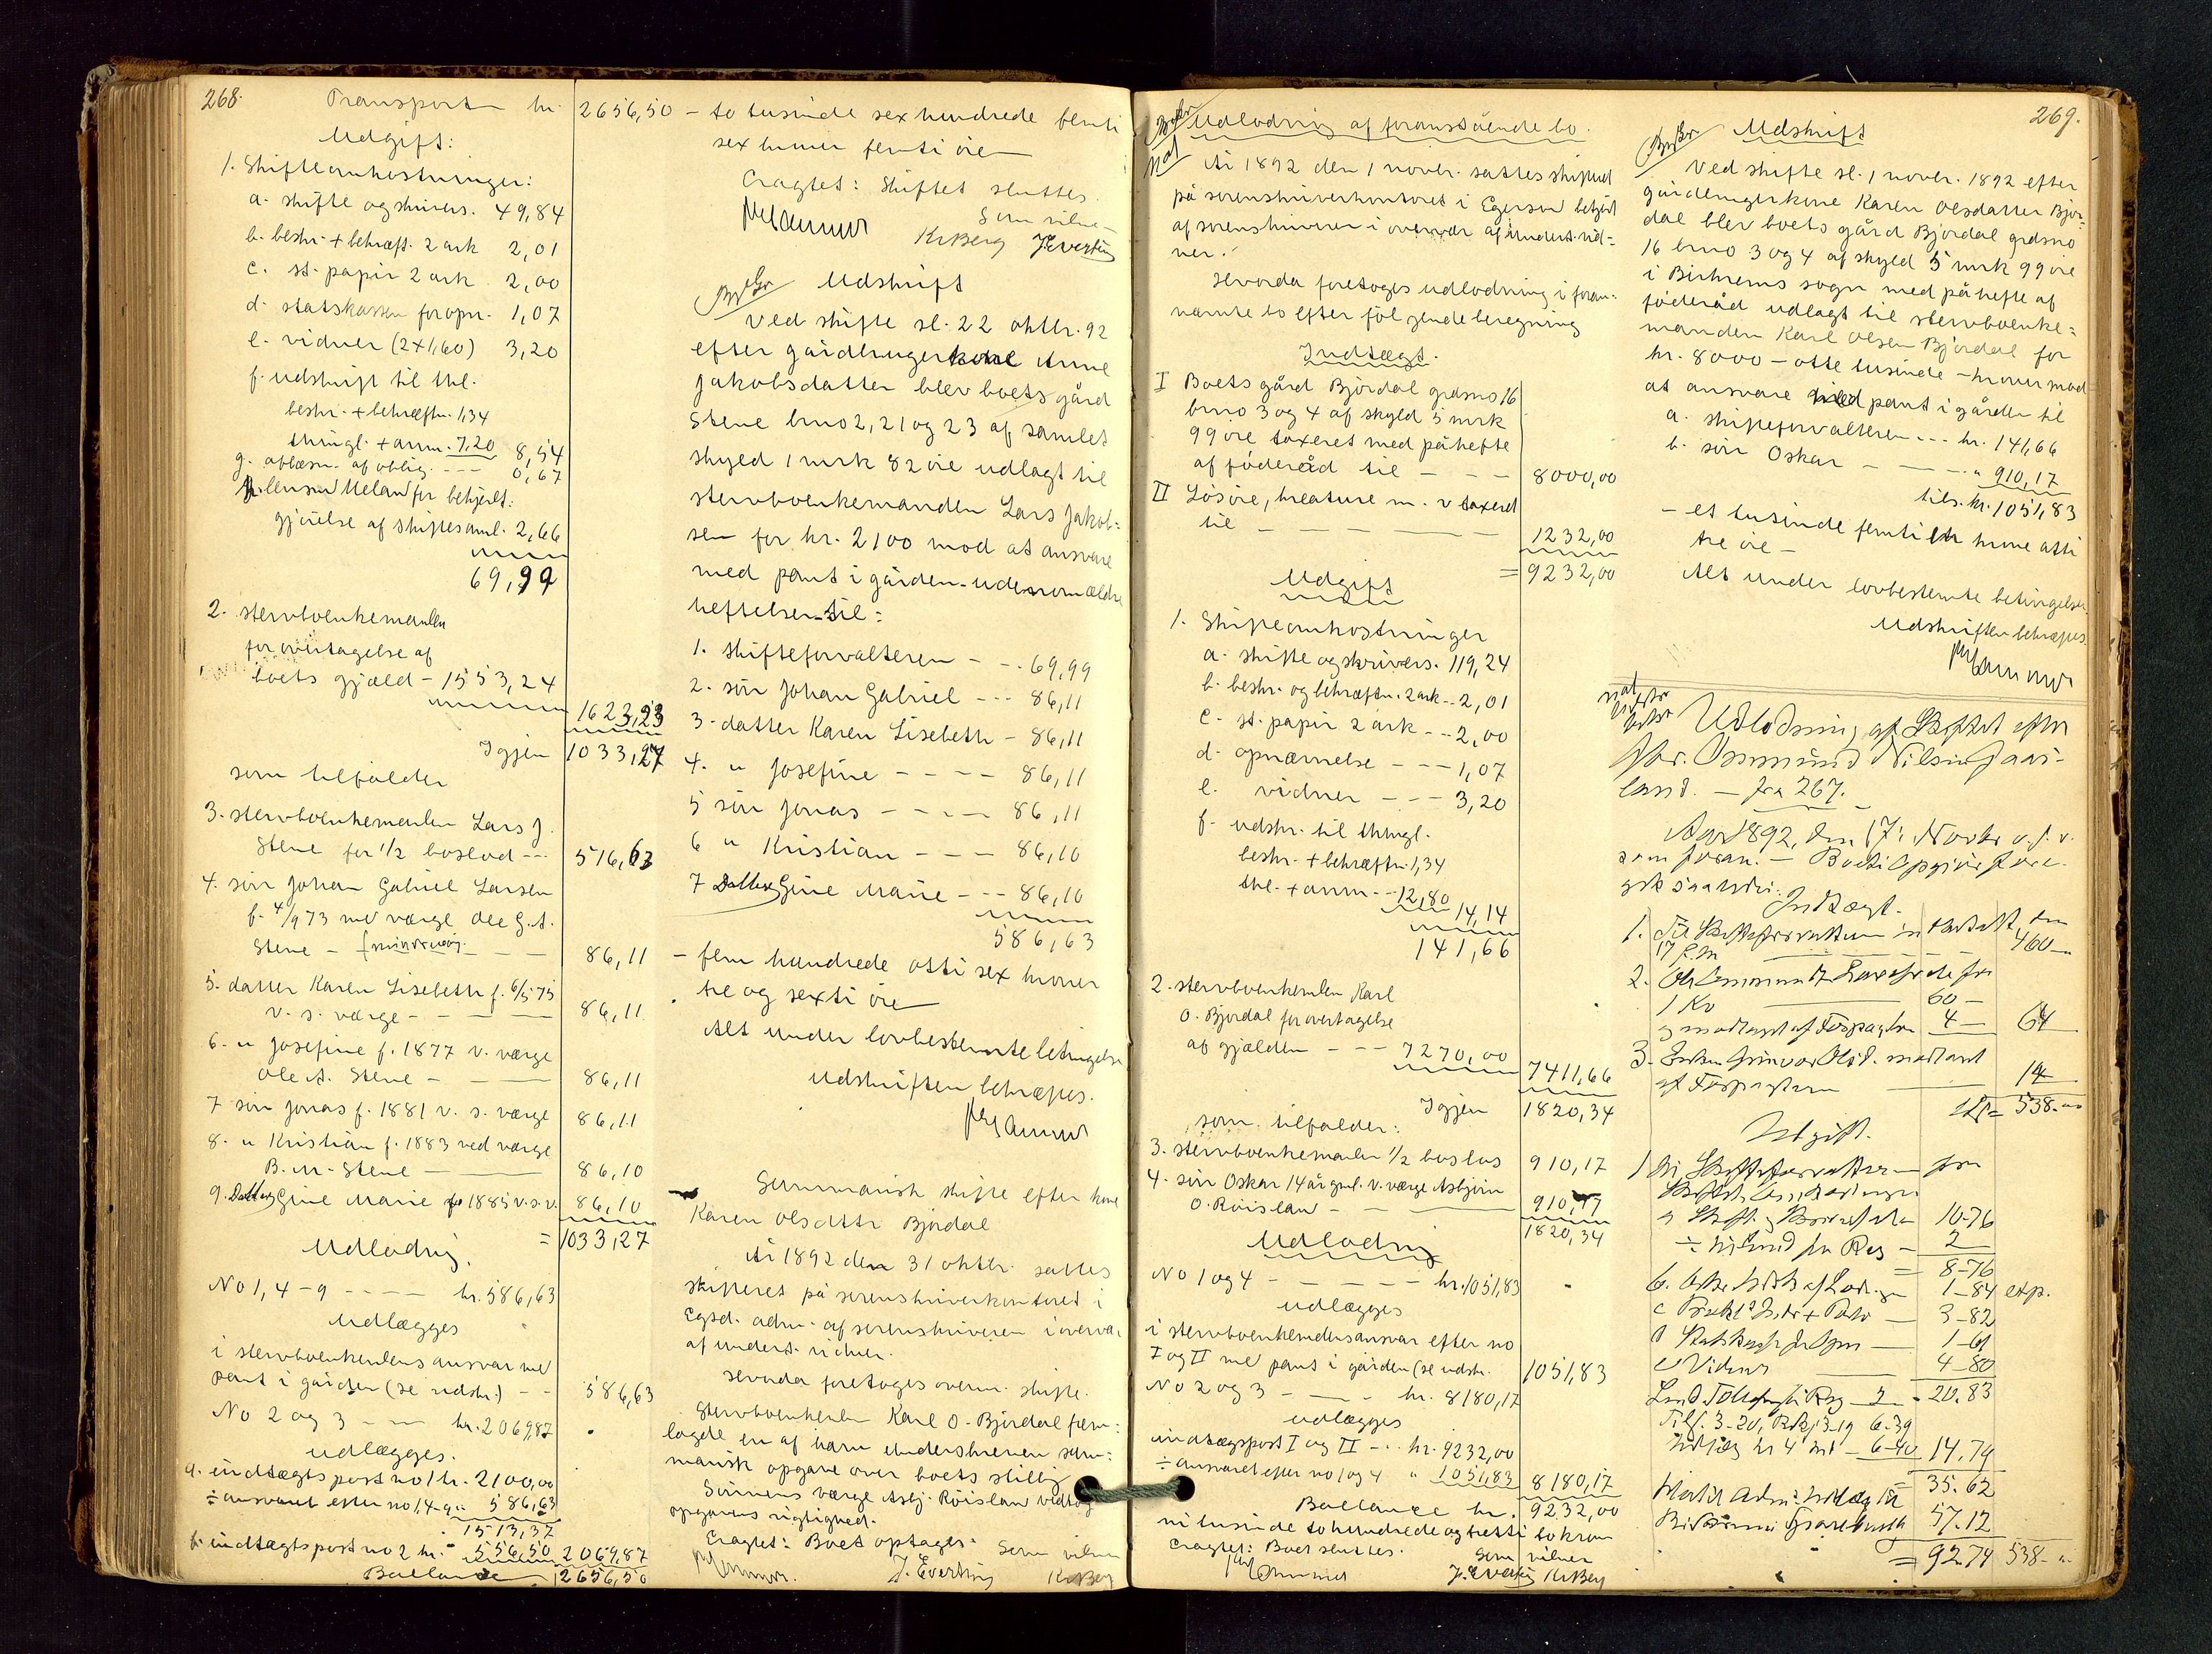 268.
Transport kr. 2656,50
Udgift:
1. Skifteomkostninger:
a. skifte og skrivers. 49,84
b. beskr. + bekræft. 2 ark 2,01
c. st. papir 2 ark 2,00
d. statskassen for opn. 1,07
e. vidner (2 x 1,60) 3,20
f. udskrift til thl.
beskr. + bekræftn. 1,34
thingl. + anm. 7,20 8,54
g. aflæsn. af oblig. --- 0,67
h. lensm Meland for bekjendt:
gjörelse af skiftesaml. 2,66
69,99
2. stervboenkemanden
for overtagelse af
boets gjæld - 1553,24
1623,23
Igjen 1033,27
som tilfalder
3. stervboenkemanden Lars J.
Stene for 1/2 boslod --- 516,63
4. sön Johan Gabriel Larsen
f. 4/9 73 med værge Ole G. A.
Stene - - - 86,11
5. datter Karen Lisebeth f. 6/5 75
v. s. værge - - - 86,11
6. " Josefine f. 1877 v. værge
Ole A. Stene - - 86,11
7 sön Jonas f. 1881 v. s. værge 86,11
8. " Kristian f. 1883 ved værge
B. M. Stene - 86,10
9. Datter Gine Marie f. 1885 v. s. v. 86,10
= 1033,27
Udlodning.
No 1, 4 - 9 - - - - kr. 586,63
udlægges
i stervboenkemdens ansvar med
pant i gården (se udskr.) - - 586,63
No 2 og 3 - - kr. 2069,87
udlægges.
a. indtægtspost no 1 kr. 2100,00
÷ ansvaret efter no 1, 4-9 " 586,63
1513,37
b. indtægtspost no 2 kr. 556,50 2069,87
Ballance 2656,50
- to tusinde sex hundrede femti
sex kroner femti öre
Eragtet: Skiftet sluttes.
Som vidne
K. Berg J. Evertsen
Udskrift
Ved skifte sl. 22 oktbr. 92
efter gårdbrugerkone Anne
Jakobsdatter blev boets gård
Stene brno 2, 21 og 23 af samlet
skyld 1 mrk 82 öre udlagt til
stervboenkemanden Lars Jakob=
sen for kr. 2100 mod at ansvare
med pant i gården - udenom ældre
heftelser - til:
1. skifteforvalteren - - . 69,99
2. sön Johan Gabriel - - - 86,11
3. datter Karen Lisebeth - 86,11
4. " Josefine - - - - 86,11
5 sön Jonas - - - - 86,11
6 " Kristian - - - 86,10
7 Datter Gine Marie - - - 86,10
586,63
- fem hundrede otti sex kroner
tre og sexti öre
Alt under lovbestemte betingelser
Udskriften bekræftes.
Summarisk skifte efter kone
Karen Olsdttr Bjordal
År 1892 den 31 oktbr. sattes
skifteret på sorenskriverkontoret i
Egsd. adm. af sorenskriveren i overvær
af undert. vidner.
Hvorda foretoges overn. skifte.
Stervboenkemden Karl O. Bjordal frem=
lagde en af ham underskreven sum=
marisk opgave over boets stilling
Sönnens værge Asbj. Röisland vedtog
opgavens rigtighed.
Eragtet: Boet optages. Som vidner
J. Evertsen K. Berg
269.
Udlodning af foranstående bo.
År 1892 den 1 novbr. sattes skifteret
på sorenskriverkontoret i Egersund betjent
af sorenskriveren i overvær af undert. vid=
ner.
Hvorda foretoges udlodning i foran=
nævnte bo efter fölgende beregning
Indtægt.
I Boets gård Bjordal grdsno 16
brno 3 og 4 af skyld 5 mrk
99 öre taxeret med påhefte
af föderåd til - - - 8000,00
II Lösöre, kreature m. v taxeret
til - - - - 1232,00
= 9232,00
Udgift
1. Skifteomkostninger
a. skifte og skrivers. 119,24
b. beskr. og bekræftn. 2 ark -- 2,01
c. st. papir 2 ark - - 2,00
d. opnævnelse - - - 1,07
e. vidner - - - 3,20
f. udskr. til thingl.
beskr. + bekræftn. 1,34
thl. + anm - - 12,80
14,14
141,66
2. stervboenkemden Karl
O. Bjordal for overtagelse
af gjælden - - - 7270,00
7411,66
Igjen 1820,34
som tilfalder:
3. stervboenkemanden 1/2 boslod 910,17
4. sön Oskar 14 år gml. v. værge Asbjörn
O. Röisland - - 910,17
1820,34
Udlodning
No 1 og 4 - - - - - kr. 1051,83
udlægges
i stervboenkemdens ansvar efter no
I og II med pant i gården (se udskr. 1051,83
No 2 og 3 - - - kr. 8180,17
udlægges
indtægtspost I og II - .. kr. 9232,00
÷ ansvaret efter no 1 og 4 " 1051,83 8180,17
Ballance kr. 9232,00
ni tusinde to hundrede og tretti to kroner
Eragtet: Boet sluttes. Som vidner
J. Evertsen K. Berg
Udskrift
Ved skifte sl. 1 novbr. 1892 efter
gårdbrugerkone Karen Olsdatter Bjor=
dal blev boets gård Bjordal grdsno
16 brno 3 og 4 af skyld 5 mrk 99 öre
i Birkrems sogn med påhefte af
föderåd udlagt til stervboenke=
manden Karl Olsen Bjordal for
kr. 8000 - otte tusinde - kroner mod
at ansvare med pant i gården til
a. skifteforvalteren - - - kr. 141,66
b. sön Oskar - - - " 910,17
tils. kr. 1051,83
- et tusinde femti en krone otti
tre öre -
Alt under lovbestemte betingelser.
Udskriften bekræftes
Udlodning af Skiftet efter
Osmund Nilsen
land. - fra 267.
Aar 1892, den 17. Novbr
som foran. -
Indtægt.
1. Til Skifteforvalteren
460
2.
1 Ko 60 -
4 - 64
3.
14
538
Udgift.
1
10-76
÷ 2
= 8-76
1-84 exp.
3-82
1-61
e Vidner 4-80
20.83
3-20, 6.39
6-40 14.79
35.62
57.12
= 92.74 538